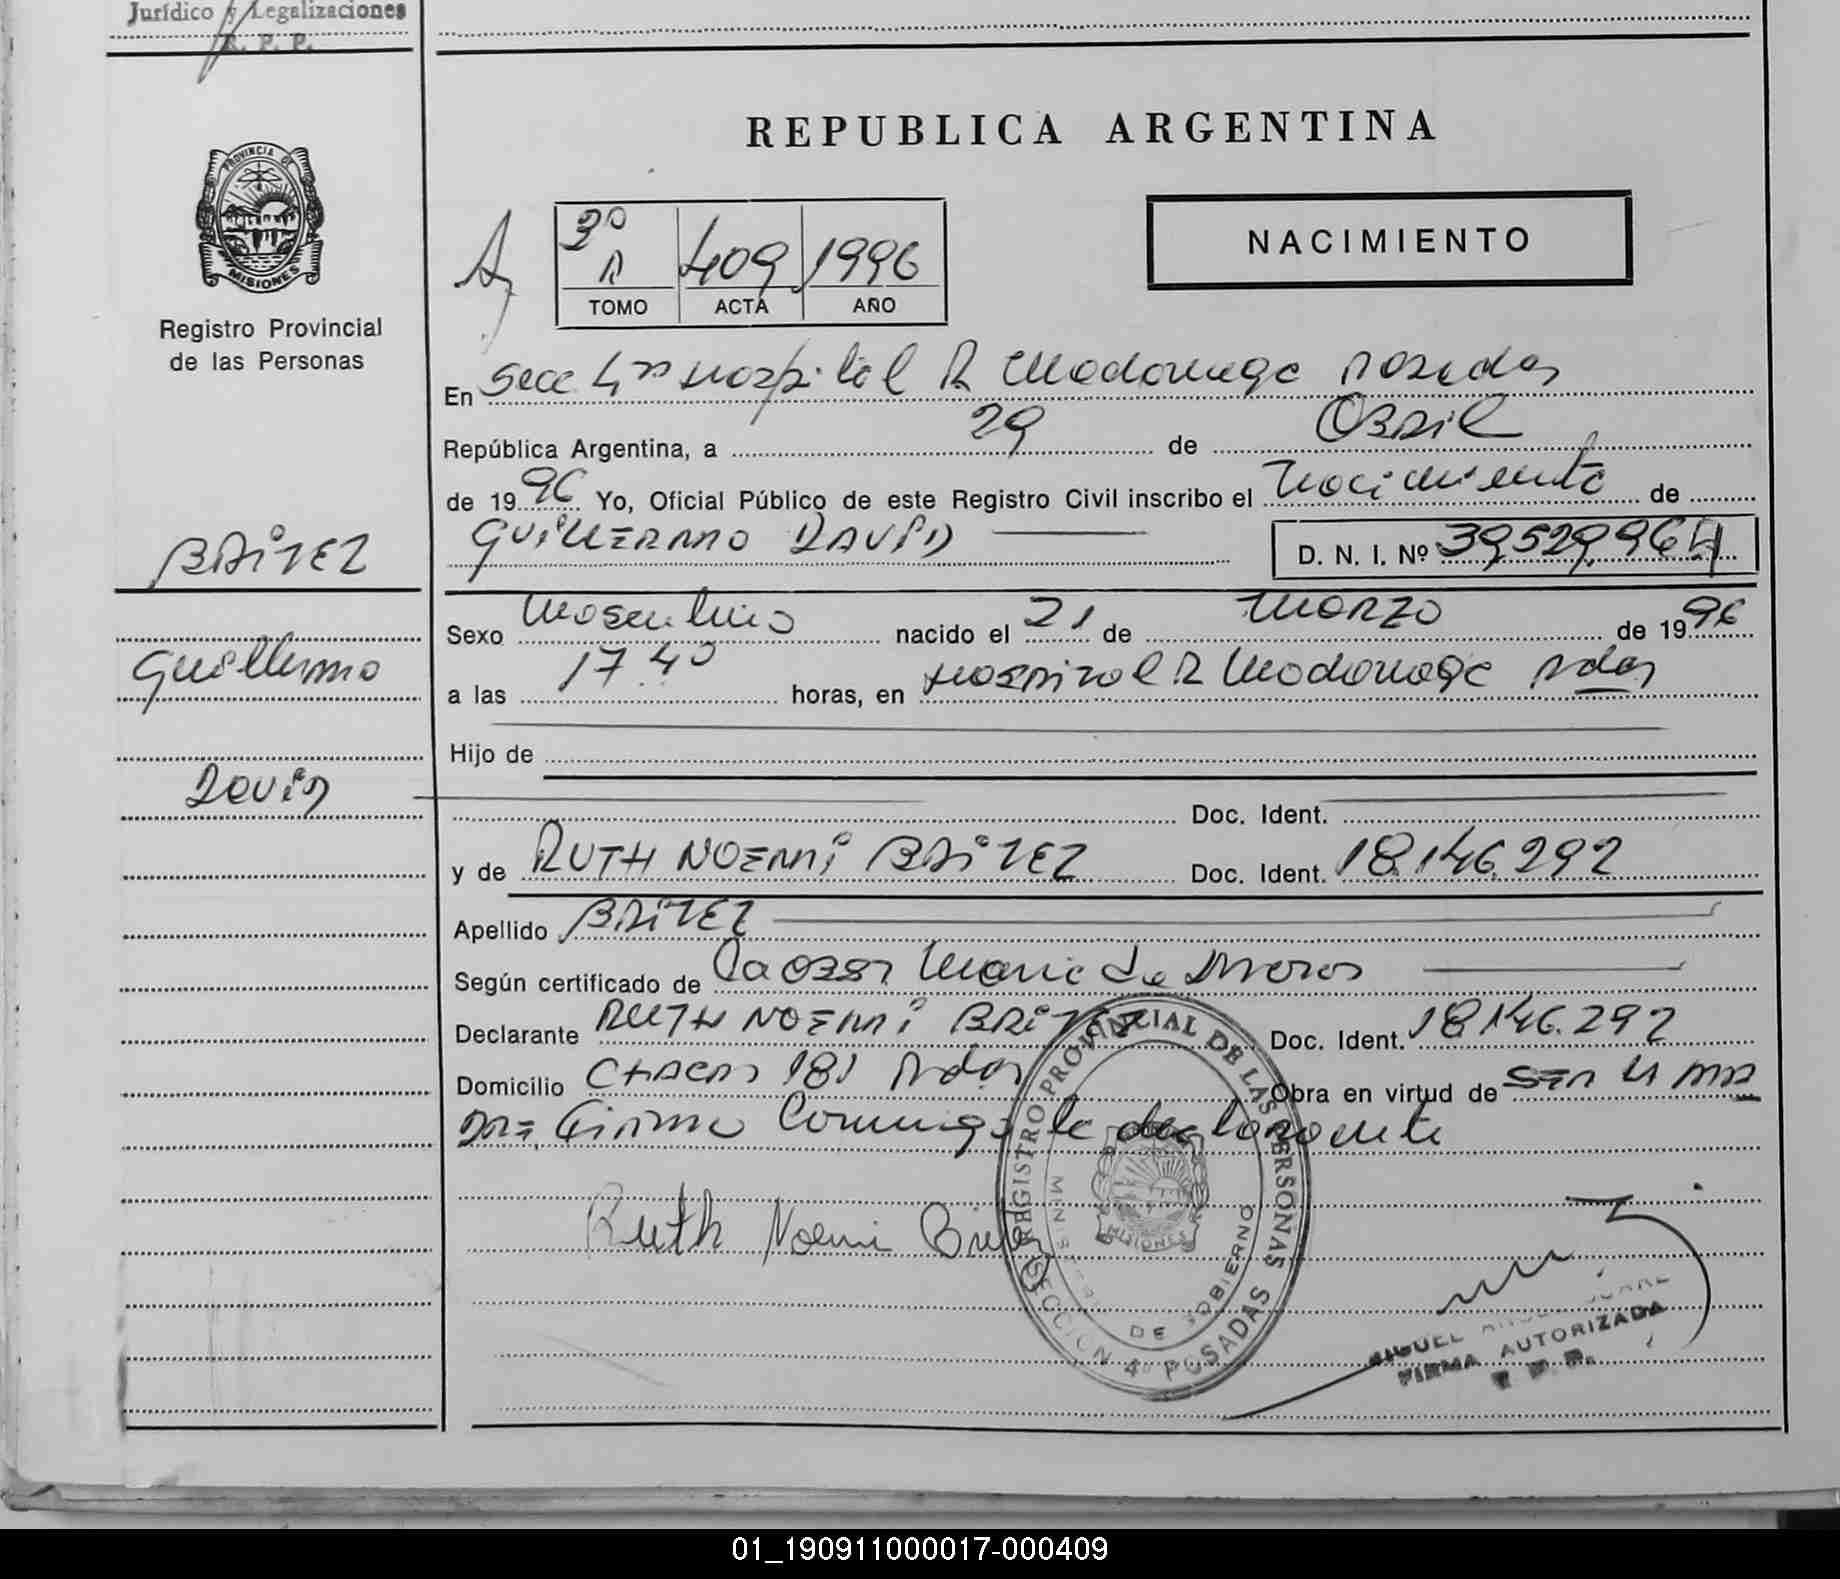 Jurídico y Legalizaciones
R. P. P.
REPUBLICA ARGENTINA
PROVINCIA DE
MISIONES
Registro Provincial
de las Personas
3º
A
409
1996
TOMO ACTA AÑO
NACIMIENTO
En Secc 4ta Hospital R Madariaga Posadas
República Argentina, a 29 de Abril
de 1996 Yo, Oficial Público de este Registro Civil inscribo el Nacimiento de
GUILLERMO DAVID
D. N. I. Nº 39.529.964
BRITEZ
Guillermo
David
Sexo Masculino nacido el 21 de Marzo de 1996
a las 17 40 horas, en Hospital R Madariaga Pdas
Hijo de
Doc. Ident.
y de RUTH NOEMI BRITEZ Doc. Ident. 18.146.292
Apellido BRITEZ
Según certificado de Maria de
Declarante RUTH NOEMI BRITEZ Doc. Ident. 18.146.292
Domicilio CHACRA 181 Pdas Obra en virtud de SER LA MA
DRE Firma Conmigo la declarante
Ruth Noemi Britez
REGISTRO PROVINCIAL DE LAS PERSONAS
SECCION 4º POSADAS
DE GOBIERNO
MISIONES
MIGUEL
FIRMA AUTORIZADA
01_190911000017-000409